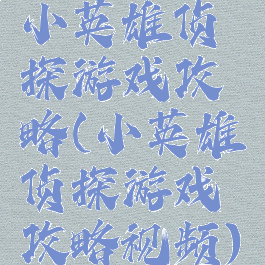 小英雄侦
探游戏攻
略(小英雄
侦探游戏
攻略视频)